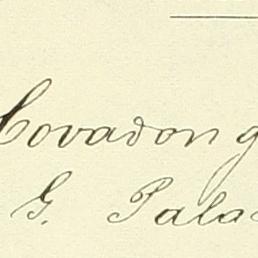 Covadong
G. Pala